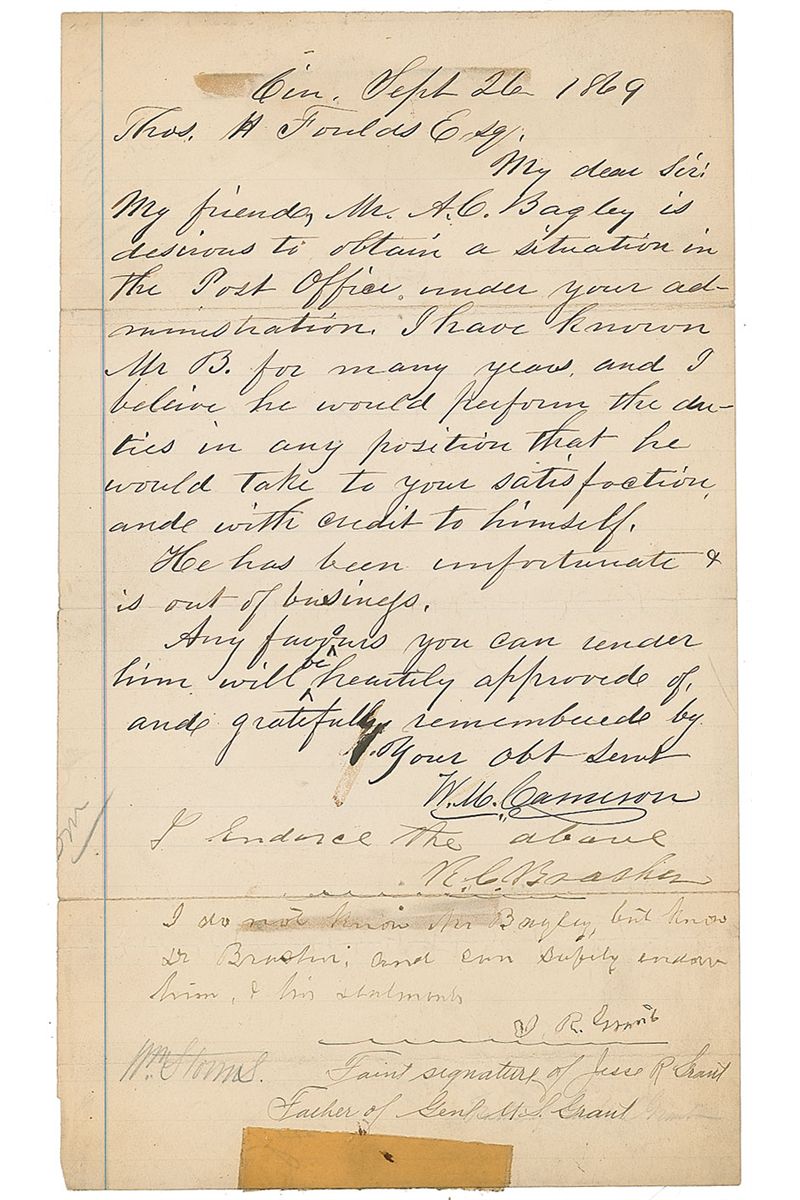 Cin. Sept 26 1869
Thos. H Foulds Esq.
My dear Sir:
My friend, Mr. A. C. Bagley is
desirous to obtain a situation in
the Post Office under your ad-
ministration. I have known
Mr B. for many years, and I
beleive he would perform the du-
ties in any position that he
would take to your satisfaction,
and with credit to himself.
He has been unfortunate &
is out of business.
Any favours you can render
him will be heartily approved of,
and gratefully remembered by
Your obt servt
W. M. Cameron
I Endorce the above
R. C. Brasher
I do not know Mr Bagley, but know
Dr Brasher, and can safely endorse
him, & his statments
J. R. Grant
Wm Stoms.
Faint signature of Jesse R Grant
Father of Genl U. S. Grant